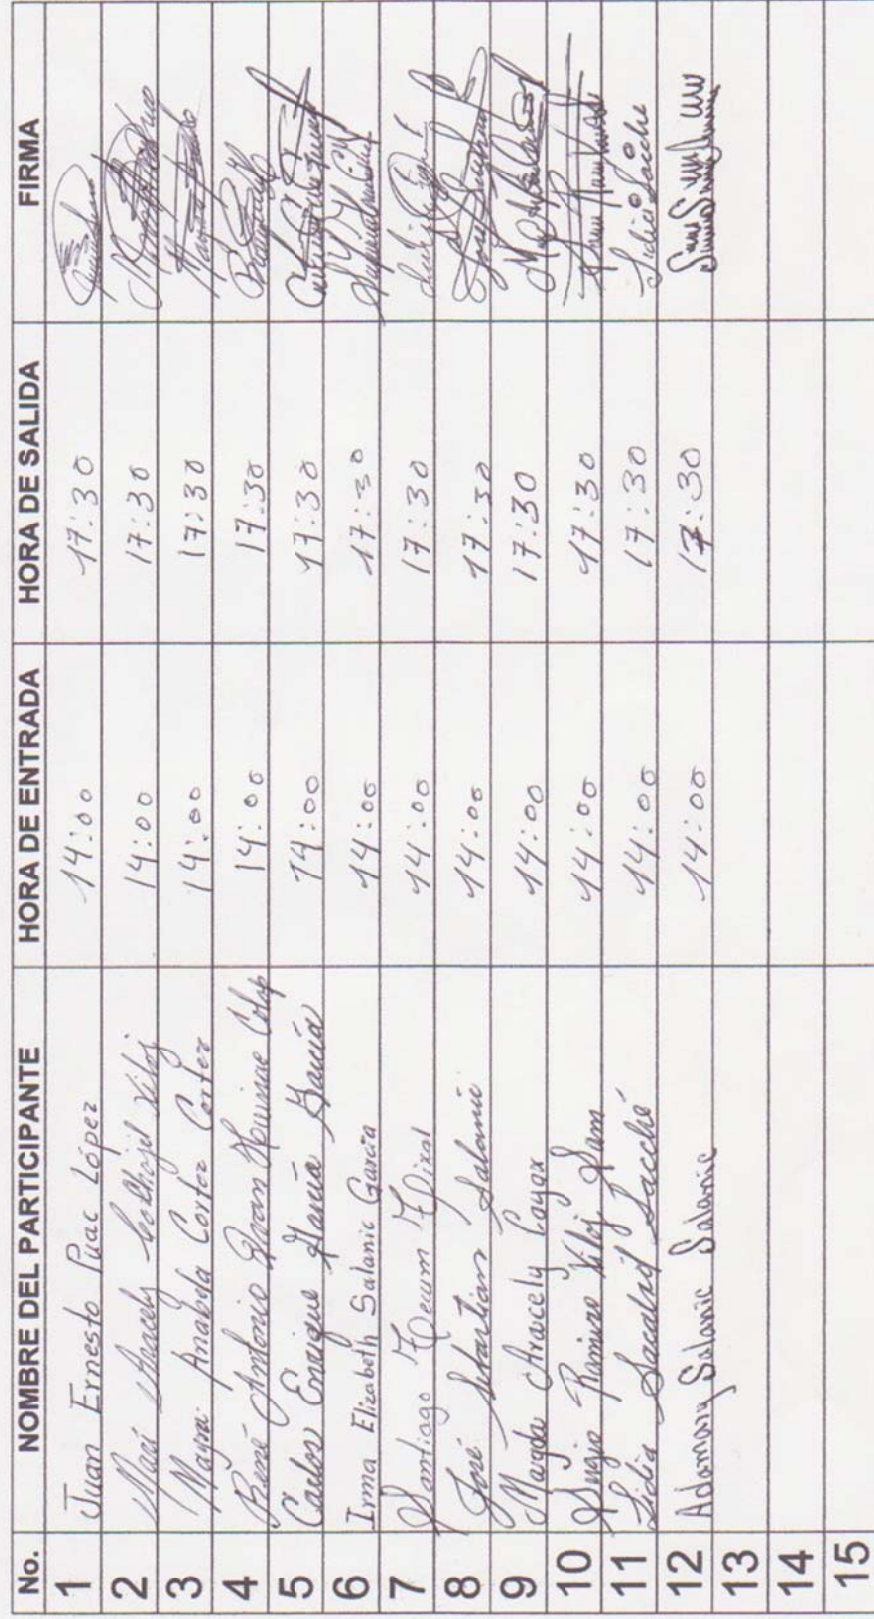 No. NOMBRE DEL PARTICIPANTE HORA DE ENTRADA HORA DE SALIDA FIRMA
1 Juan Ernesto Puac López 14:00 17:30
2 Mari Aracely Colhojil Xiloj 14:00 17:30
3 Mayra Anabela Cortez Cortez 14:00 17:30
4 René Antonio Ivan Huinac Colop 14:00 17:30
5 Carlos Enrique García García 14:00 17:30
6 Irma Elizabeth Salanic García 14:00 17:30
7 Santiago Tecum 14:00 17:30
8 José Sebastian Salanic 14:00 17:30
9 Magda Aracely Coyox 14:00 17:30
10 Sergio Ramiro Xiloj Sam 14:00 17:30
11 Lidia Sacalxid Sacché 14:00 17:30
12 Adamary Salanic Salanic 14:00 17:30
13
14
15